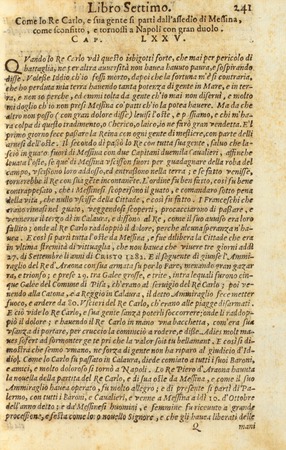 Libro Settimo. 241
Come lo Re Carlo, e sua gente si partì dall'assedio di Messina,
come sconfitto, e tornossi a Napoli con gran duolo.
CAP. LXXV.
QVando lo Re Carlo vdì questo isbigottì forte, che mai per pericolo di
battaglia, ne per altra auuersità non hauea hauuto paura, e sospirando
disse. Volesse Iddio ch'io fossi morto, dapoi che la fortuna m'è sì contraria,
che ho perduta mia terra hauendo tanta potenza di gente in Mare, e in ter-
ra, e non so perche, e emmi tolta da gente ch'io mai non diseruì, e molto
mi doglio ch'io non presi Messina co' patti ch'io la potea hauere. Ma da che
altro non posso (con gran dolore disse) leuisi l'oste, e passiamo, e chi n'ha-
urà colpa di questo tradimento, ò cherico, ò laico, io ne farò gran vendetta. E'l
primo giorno fece passare la Reina con ogni gente di mestiere, con parte delli
arnesi dell'oste. Il secondo dì passò lo Re con tutta sua gente, saluo che la-
ciò in guato fuori di Messina con due Capitani duemila caualieri, affine che
leuata l'oste, se que' di Messina vscisson fuori per guadagnare della roba del
campo, vscissero loro addosso, ed intrassono nella terra; e se fatto venisse,
ritornerebbe il Re con sua gste incontanente. L'ordine fu ben fatto, e sì fu bene
contrapensato, che i Messinesi s'apersono il guato, e comandaro sotto pena
della vita, che nullo vscisse della Cittade, e così fu fatto. I Franceschi che
erano rimasi in guato, veggendosi scoperti, procacciaronsi di passare, e
vennerne il terzo dì in Calaura, e dissono al Re, come il suo auuiso era loro
fallito; onde al Re Carlo raddoppiò il dolore, perche alcuna speranza n'ha-
uea. E così si partì tutta l'oste di Messina, e fue diliberata la Cittade che era
in vltima stremità di vettuaglia, che non hauea che viuere tre giorni addì
27. di Settembre li anni di CRISTO 1282. E il seguente dì giunse l'Ammi-
raglio del Re d'Araona con sua armata su per lo Faro, menando gran gaza-
ra, e trionfo; e prese 29. tra Galee grosse, e trite, intra lequali furono cin-
que Galee del Comune di Pisa, ch'erano al seruigio del Re Carlo; poi ve-
nendo alla Catona, e a Reggio in Calaura, il detto Ammiraglio fece metter
fuoco, e ardere da 80. Vscieri del Re Carlo, ch'erano alle piagge disarmati.
E ciò vide lo Re Carlo, e sua gente sanza poterli soccorrere; onde li raddop-
piò il dolore; e hauendo il Re Carlo in mano vna bacchetta, com'era sua
vsanza di portare, per cruccio la cominciò a rodere, e disse. Adies molt ma-
ues sofert as formonter ge te pri che la valor soit tu bellamant. E così si di-
mostra che senno vmano, ne forza di gente non ha riparo al giudicio d'Id-
dio. Come lo Re Carlo fu passato in Calaura, diede comiato a tutti i suoi Baroni,
e amici, e molto doloroso si tornò a Napoli. Lo Re Piero d'Araona hauuta
la nouella della partita del Re Carlo, e di sua oste da Messina, e come il suo
Ammiraglio hauea operato, fu molto allegro; e di presente si partì di Pa-
lermo, con tutti i Baroni, e Caualieri, e venne a Messina a dì 10. d'Ottobre
dell'anno detto; e da' Messinesi huomini, e femmine fu riceuuto a grande
processione, e festa come lor nouello Signore, e che gli hauea liberati delle
Q mani